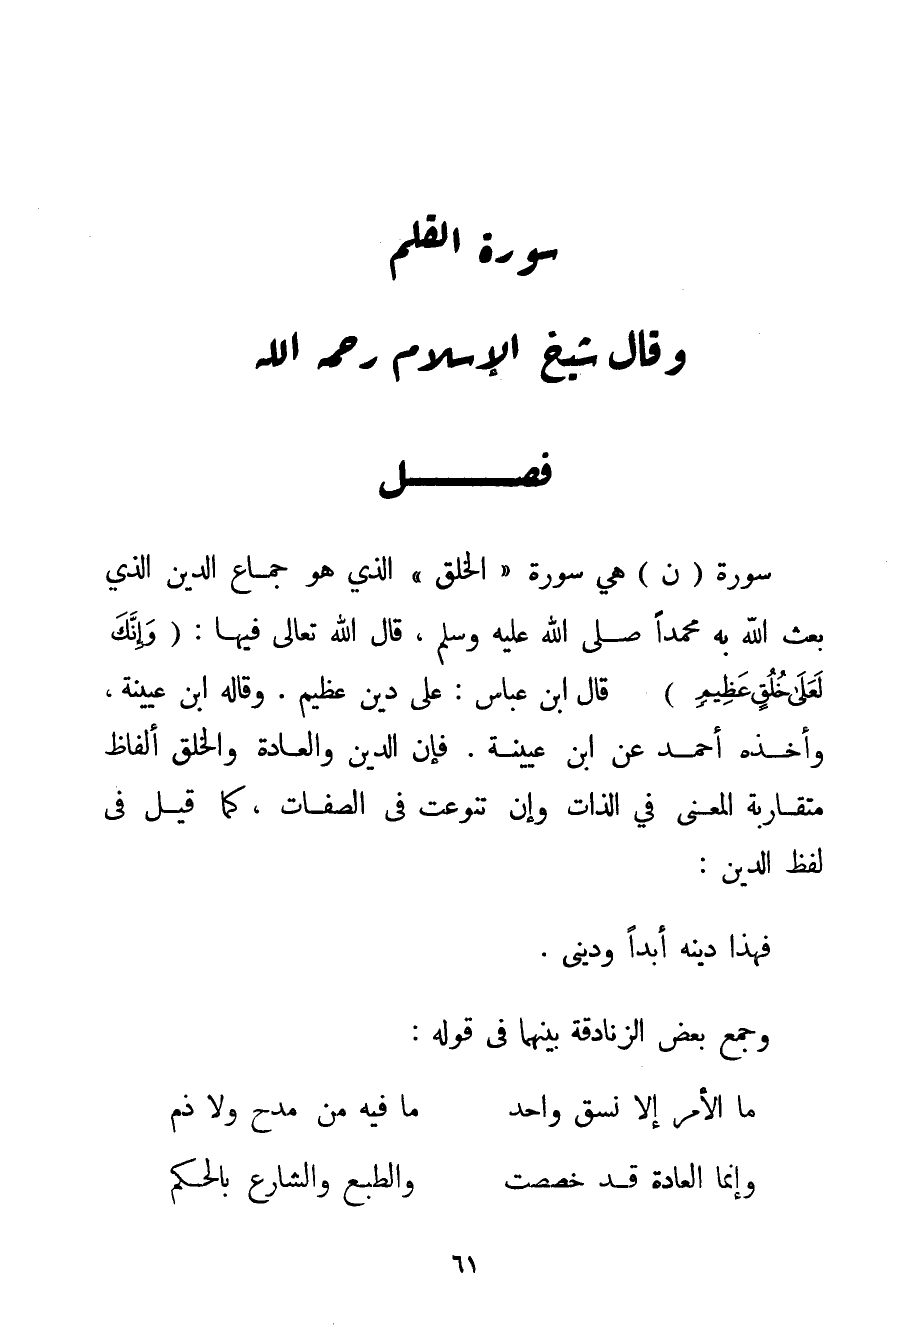 سورة القلم
وقال شيخ الإسلام رحمه الله
فصل
سورة ( ن ) هي سورة « الخلق » الذي هو جماع الدين الذي
بعث الله به محمداً صلى الله عليه وسلم ، قال الله تعالى فيها : ( وَإِنَّكَ
لَعَلَىٰ خُلُقٍ عَظِيمٍ ) قال ابن عباس : على دين عظيم . وقاله ابن عيينة ،
وأخذه أحمد عن ابن عيينة . فإن الدين والعادة والخلق ألفاظ
متقاربة المعنى في الذات وإن تنوعت فى الصفات ، كما قيل فى
لفظ الدين :
فهذا دينه أبداً ودينى .
وجمع بعض الزنادقة بينها فى قوله :
ما الأمر إلا نسق واحد ما فيه من مدح ولا ذم
وإنما العادة قد خصصت والطبع والشارع بالحكم
٦١